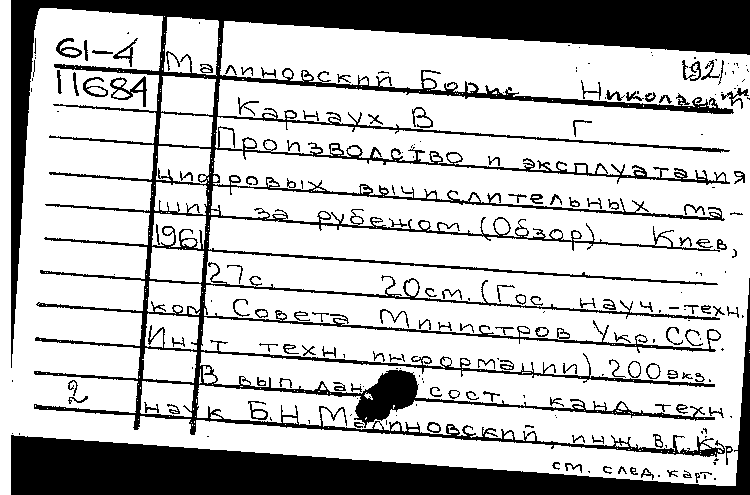 61-4 Малиновский, Борис Николаевич 1921
11684 Карнаух, В Г
Производство и эксплуатация
цифровых вычислительных ма-
шин за рубежом. (Обзор). Киев,
1961.
27с. 20см. (Гос. науч.-техн.
ком. Совета Министров Укр. ССР.
Ин-т техн. информации). 200 экз.
В вып. дан. сост.: канд. техн.
2 наук Б.Н. Малиновский, инж. В.Г. Кар-
см. след. карт.